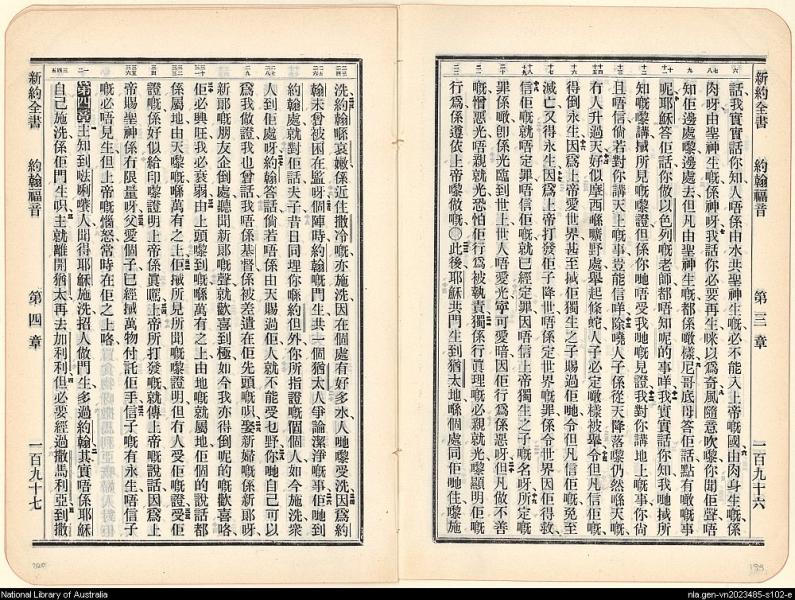 新約全書　約翰福音　第三章　一百九十六
話、我實實話你知、人唔係由水共聖神生嘅、必不能入上帝嘅國、由肉身生嘅、係
肉呀、由聖神生嘅、係神呀、我話你必要再生、咪以爲奇、風隨意吹嚟、你聞佢聲、唔
知佢邊處嚟、邊處去、但凡由聖神生嘅、都係噉樣、尼哥底母答佢話、點有噉嘅事
呢、耶穌答佢話、你做以色列嘅老師、都唔知呢的事咩、我實實話你知、我哋搣所
知嘅嚟講、搣所見嘅嚟證、但係你哋唔受我哋嘅見證、我對你講地上嘅事、你尚
且唔信、倘若對你講天上嘅事、豈能信咩、除嘵人子係從天降落嚟、仍然喺天、冇
有人升過天、好似摩西喺曠野處舉起條蛇、人子必定噉樣被舉、令但凡信佢嘅、
得倒永生、因爲上帝愛世界、甚至搣佢獨生之子賜過佢哋、令但凡信佢嘅、免至
滅亡、又得永生、因爲上帝打發佢子降世、唔係定世界嘅罪、係令世界因佢得救、
信佢嘅、就唔定罪、唔信佢嘅、就已經定罪、因唔信上帝獨生之子嘅名呀、所定嘅
罪係噉、即係光臨到世上、世人唔愛光、寧可愛暗、因佢行爲係惡呀、但凡做不善
嘅、憎惡光、唔親就光、恐怕佢行爲被執責、獨係行眞理嘅、必親就光、嚟顯明佢嘅
行爲、係遵依上帝嚟做嘅、○此後耶穌共門生到猶太地、喺個處同佢哋住、嚟施
洗、約翰喺哀嫩、係近住撒冷嘅、亦施洗、因在個處有好多水、人哋嚟受洗、因爲約
翰未曾被困在監呀、個陣時約翰嘅門生、共一個猶太人爭論潔淨嘅事、佢哋到
約翰處、就對佢話、夫子、昔日同埋你喺約但外、你所指證嘅個個人、如今施洗、衆
人到佢處呀、約翰答話、倘若唔係由天賜過佢、人就不能受乜野、你哋自己可以
爲我做證、我也曾話、我唔係基督、係被差遣在佢先頭嘅、娶新婦嘅、係新郎呀、
新郎嘅朋友企倒處、聽聞新郎嘅聲、就歡喜到極、如今我亦得倒呢的嘅歡喜咯、
佢必興旺、我必衰弱、由上頭嚟到嘅、喺萬有之上、由地嘅、就屬地、佢個的說話都
係屬地、由天嚟嘅、喺萬有之上、佢搣所見所聞嘅嚟證明、但冇人受佢嘅證、受佢
證嘅、係好似給印嚟證明上帝係眞嘅、上帝所打發嘅、就傳上帝嘅說話、因爲上
帝賜聖神、係冇限量呀、父愛個子、已經搣萬物付託佢手、信子嘅、有永生、唔信子
嘅、必唔見生、但上帝嘅惱怒、常時在佢之上咯、
第四章　主知到𠵽唎㘔人聞得耶穌施洗招人做門生、多過約翰、其實唔係耶穌
自己施洗、係佢門生呮、主就離開猶太、再去加利利、但必要經過撒馬利亞、到撒
新約全書　約翰福音　第四章　一百九十七
National Library of Australia
nla.gen-vn2023485-s102-e